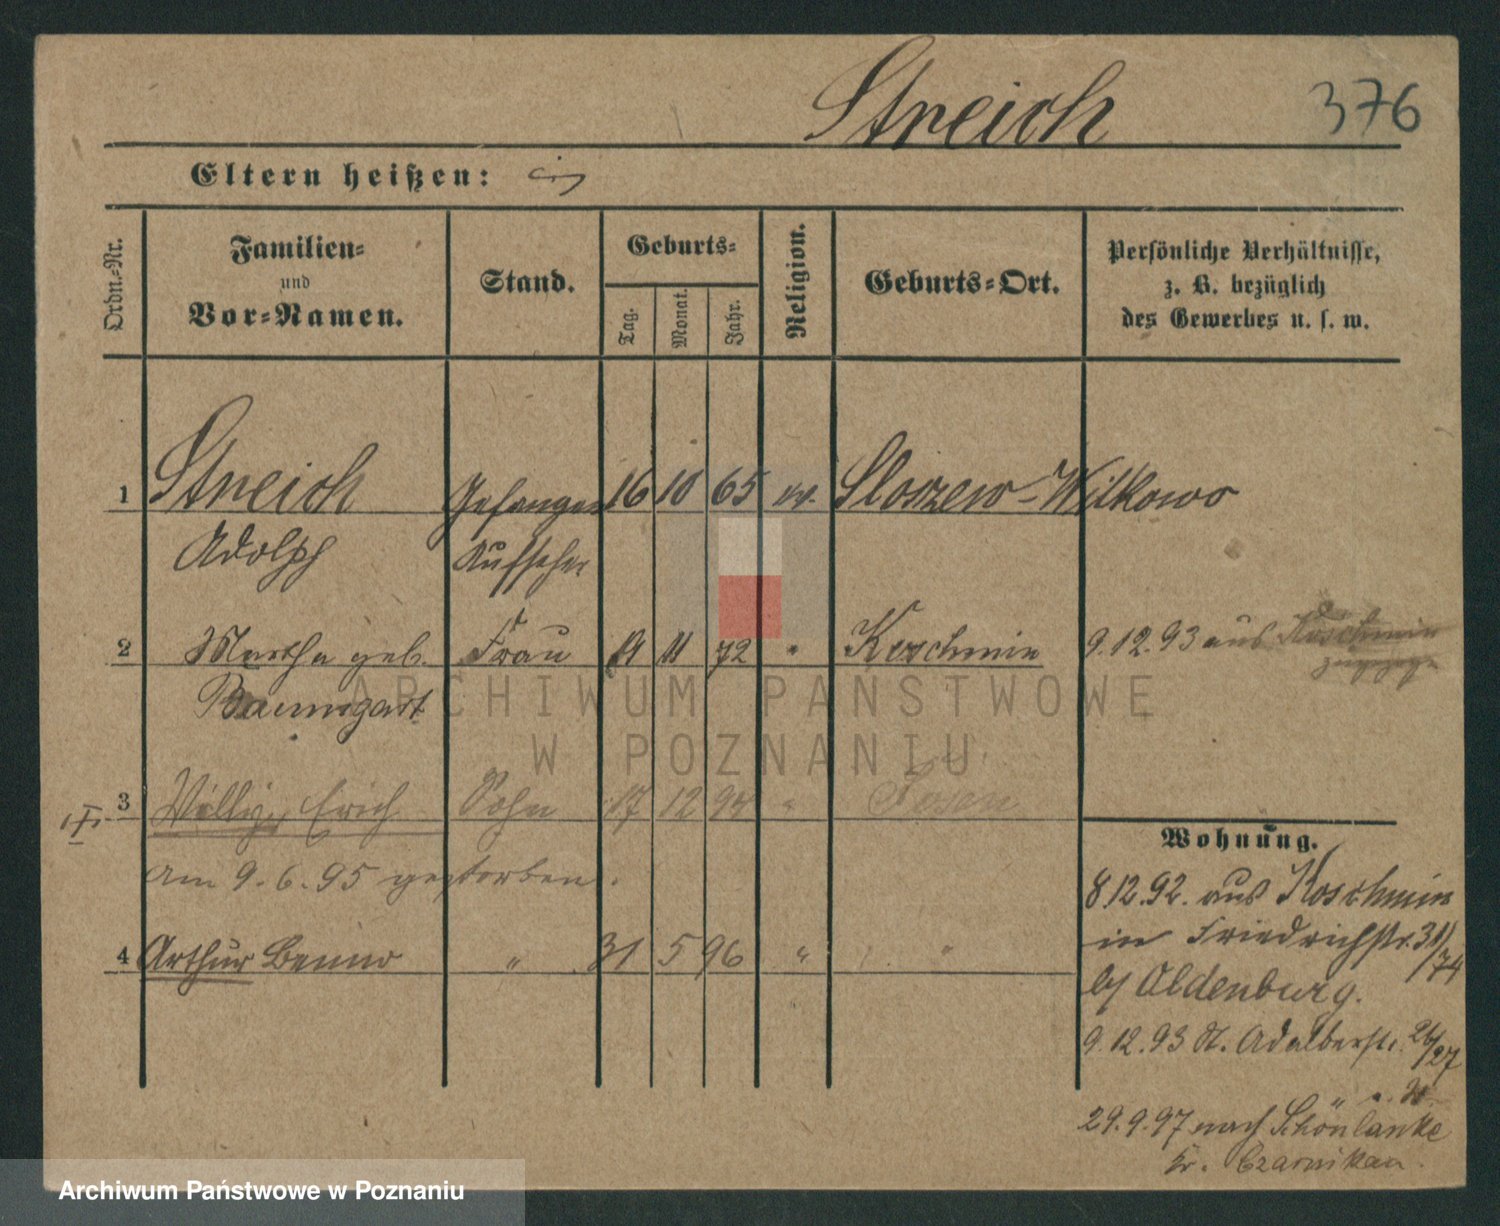 Streich 376
Eltern heißen:
Ordn.-Nr.
Familien-
und
Vor-Namen.
Stand.
Geburts-
Tag.
Monat.
Jahr.
Religion.
Geburts-Ort.
Persönliche Verhältnisse,
z. B. bezüglich
des Gewerbes u. s. w.
1 Streich Gefangen 16 10 65 ev. Wilkowo
Adolph Aufseher
2 Martha geb. Frau 11 72 " Koschmin 9.12.93 aus Koschmin
Baumgart
3 Willy, Erich Sohn 17 12 94 " Posen
am 9.6.95 gestorben.
4 Arthur Benno " 31 5 96 " "
Wohnung.
8.12.92. aus Koschmin
in Friedrichstr. 31/74
by Oldenburg.
9.12.93 St. Adalberstr. 26/27
29.9.97 nach Schönlanke
Kr. Czarnikau.
ARCHIWUM PAŃSTWOWE
W POZNANIU
Archiwum Państwowe w Poznaniu